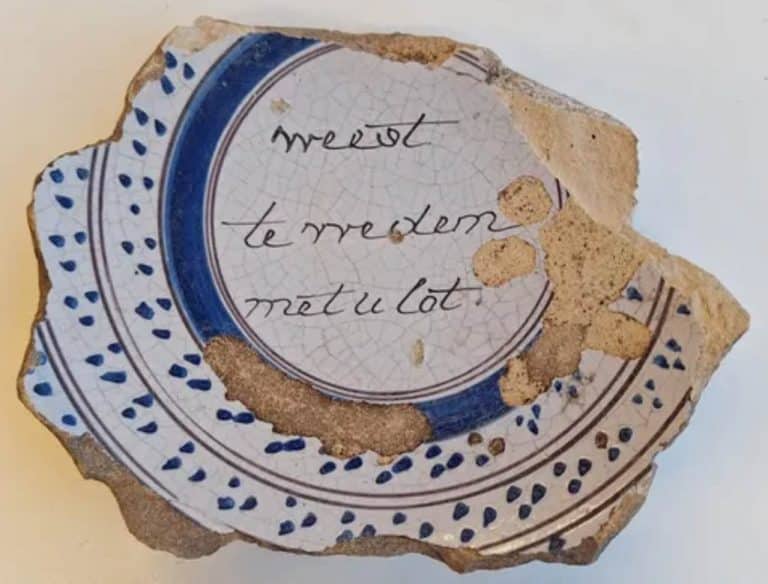 weest
te vreden
met u lot